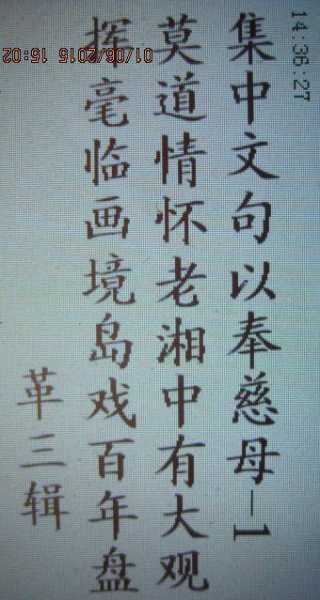 集中文句以奉慈母－1
莫道情怀老湘中有大观
挥毫临画境岛戏百年盘
革三辑
14:36:27
01/06/2015 15:02